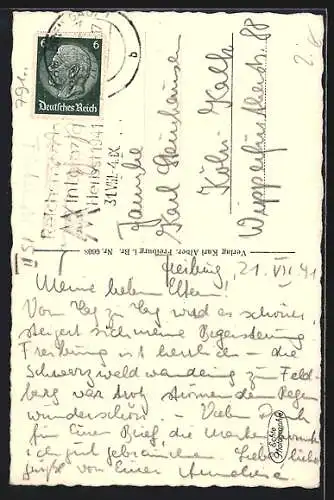 791.
2.6
6 6
Deutsches Reich
31.VIII.-4.IX.
b
Familie
Karl
Köln-Kalk
Wipperfürtherstr. 88
Verlag Karl Alber, Freiburg i. Br. Nr. 6608
Freiburg, 21. VII. 41
Meine lieben Eltern!
Von Tag zu Tag wird es schöner,
steigert sich meine Begeisterung
Freiburg ist herrlich – die
Schwarzwaldwanderung zum Feld-
berg war trotz strömendem Regen
wunderschön. – Vielen Dank
für Euren Brief, die Marken konnte
ich gut gebrauchen. Liebe
grüßt von Eurer Anneliese
Echte Photographie